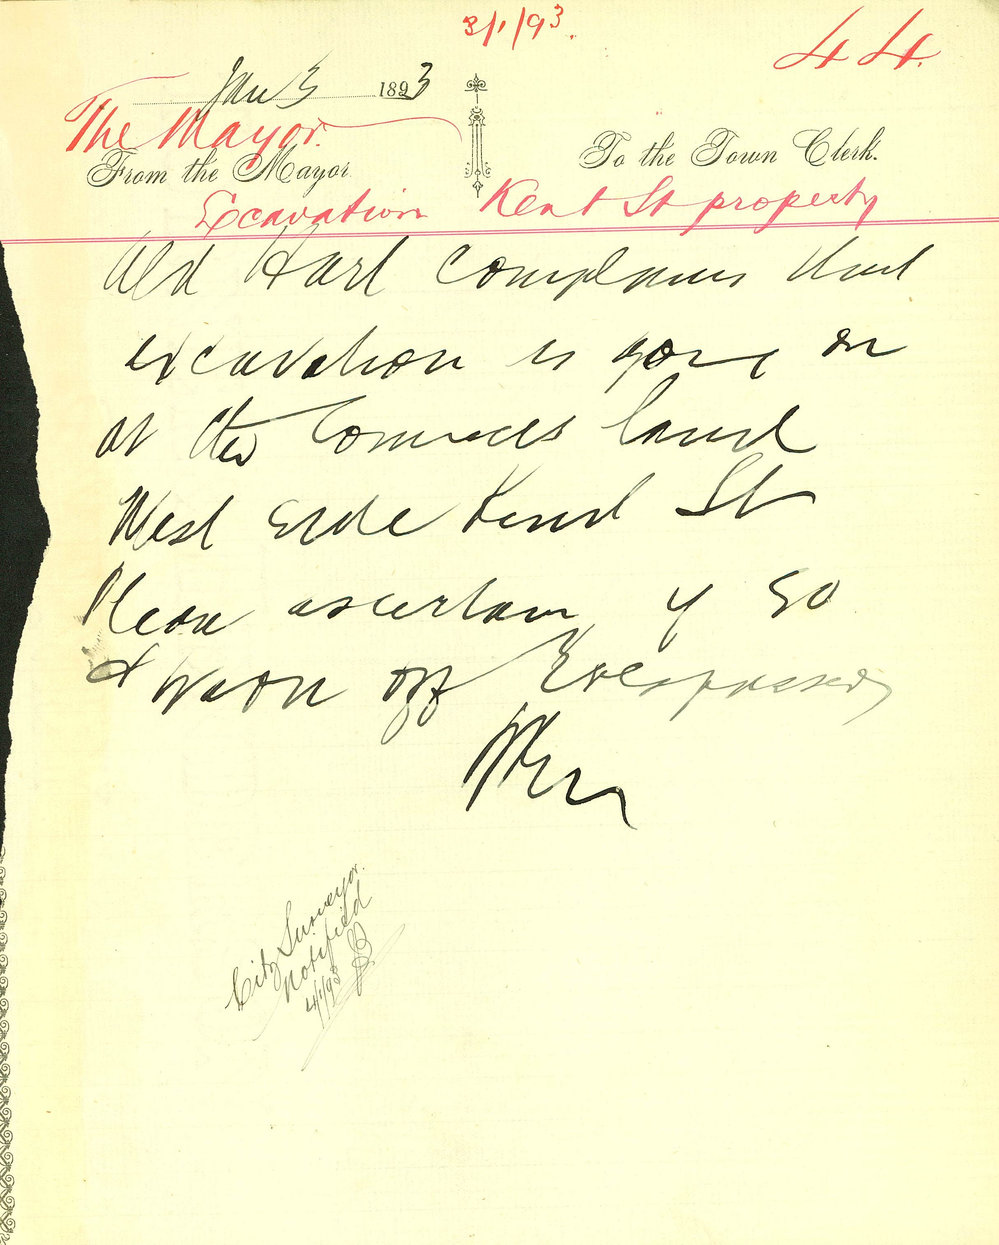 3/1/93.
44.
Jan 3 1893
The Mayor.
From the Mayor
To the Town Clerk.
Excavation Kent St property
Ald Hart complains that
excavation is going on
at the Councils land
West side Kent St
Please ascertain if so
& warn off Trespassers
City Surveyor.
Notified
4/1/93